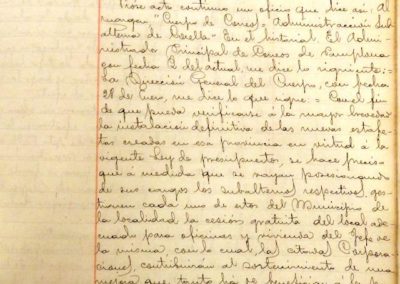 acto continuo un oficio que dice así: Al
margen, "Cuerpo de Correos - Administración Sub
alterna de Estella" En el historial. El Admi
nistrador Principal de Correos de Pamplona
con fecha 2 del actual, me dice lo siguiente:
La Dirección General del Cuerpo, con fecha
28 de Enero, me dice lo que sigue: - Con el fin
de que pueda verificarse á la mayor brevedad
la instalación definitiva de las nuevas estafe-
tas creadas en esa provincia en virtud á la
vigente Ley de presupuestos, se hace preciso
que á medida que se vayan posesionando
de sus cargos los subalternos respectivos, ges-
tionen cada uno de estos del Municipio de
la localidad la cesión gratuita del local ade
cuado para oficinas y vivienda del Jefe de
la misma, con lo cual, las citadas Corpora-
ciones, contribuirán al sostenimiento de una
mejora que tanto ha de beneficiar á la